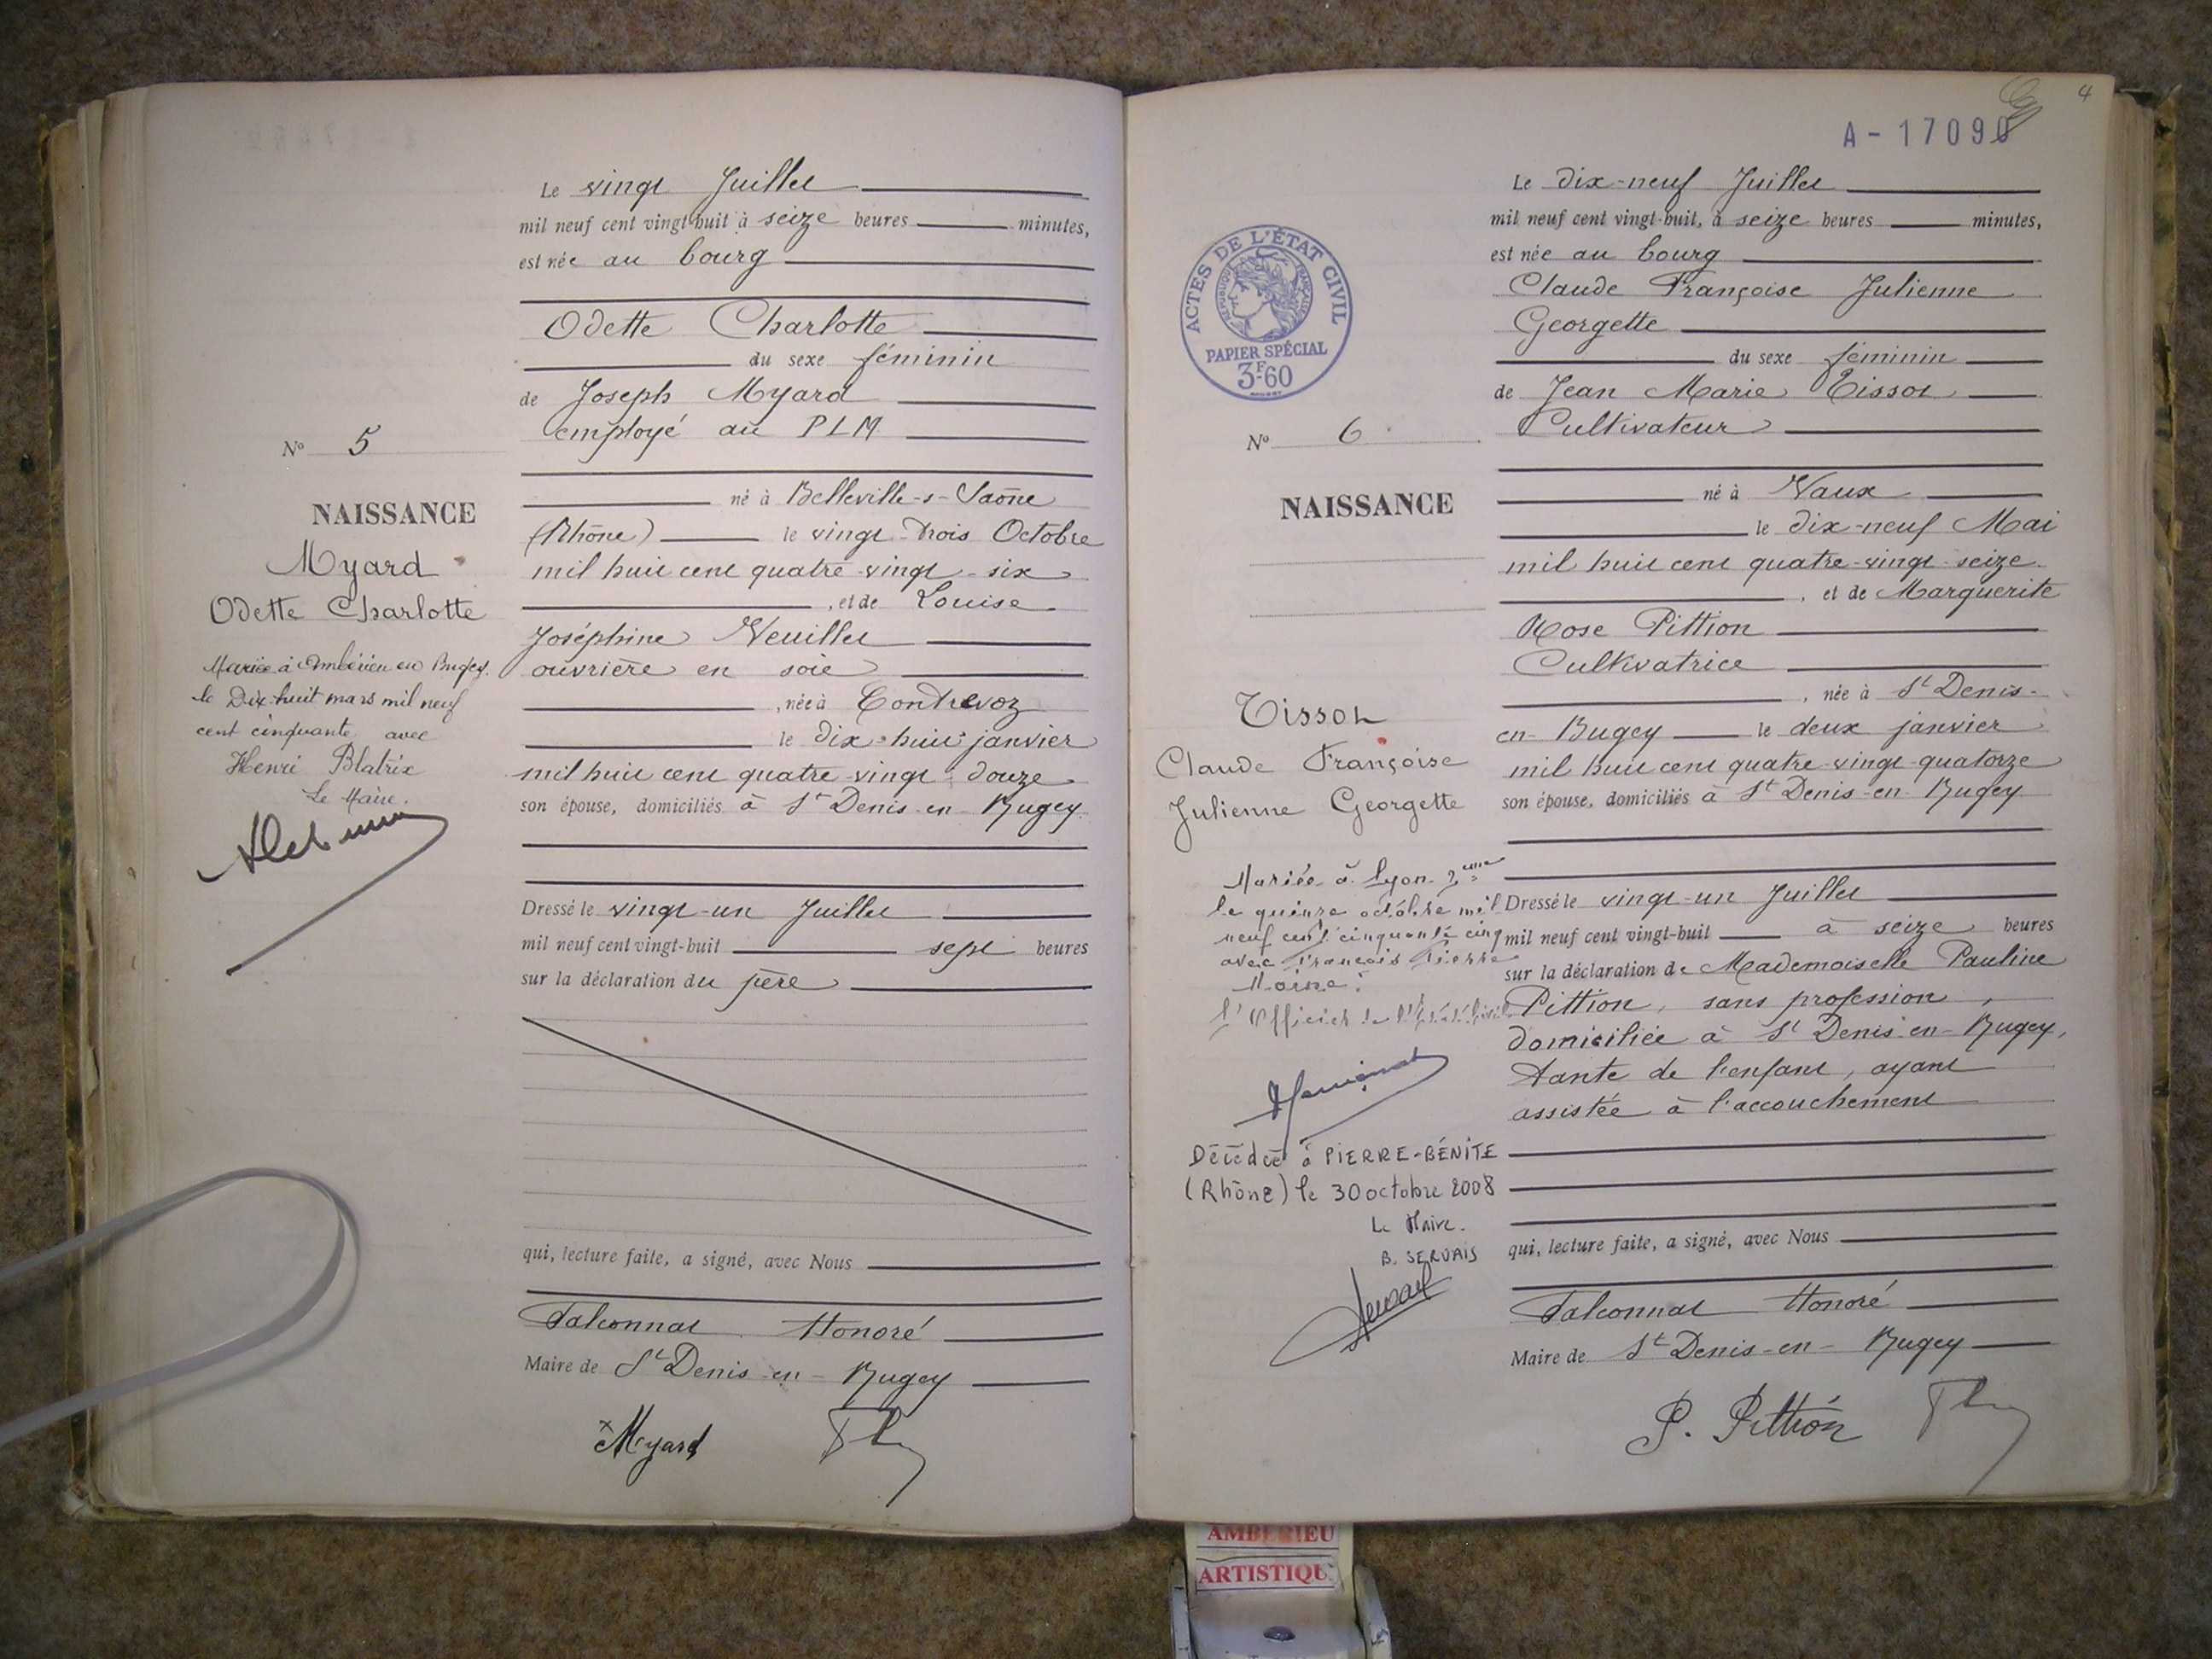 Le vingt Juillet
mil neuf cent vingt-huit à seize heures minutes,
est née au bourg
Odette Charlotte
du sexe féminin
de Joseph Myard
employé au PLM
né à Belleville-s-Saône
(Rhône) le vingt-trois Octobre
mil huit cent quatre-vingt-six
, et de Louise
Joséphine Veuillet
ouvrière en soie
, née à Contrevoz
le dix-huit janvier
mil huit cent quatre-vingt-douze
son épouse, domiciliés à St Denis-en-Bugey
Dressé le vingt-un Juillet
mil neuf cent vingt-huit sept heures
sur la déclaration du père
qui, lecture faite, a signé, avec Nous
Falconnat Honoré
Maire de St Denis-en-Bugey
Myard
No 5
NAISSANCE
Myard
Odette Charlotte
Mariée à Ambérieu en Bugey.
le Dix-huit mars mil neuf
cent cinquante avec
Henri Blatrix
Le Maire.
4
A-17090
ACTES DE L'ÉTAT CIVIL
RÉPUBLIQUE FRANÇAISE
PAPIER SPÉCIAL
3F.60
No 6
NAISSANCE
Tissot
Claude Françoise
Julienne Georgette
Mariée à Lyon 2eme
le quinze octobre mil
neuf cent cinquante cinq
avec François Pierre
l'Officier de l'état civil
Décédée à PIERRE-BÉNITE
(Rhône) le 30 octobre 2008
Le Maire.
B. SERVAIS
Le dix-neuf Juillet
mil neuf cent vingt-huit, à seize heures minutes,
est née au bourg
Claude Françoise Julienne
Georgette
du sexe féminin
de Jean Marie Tissot
Cultivateur
né à Vaux
le dix-neuf Mai
mil huit cent quatre-vingt-seize
, et de Marguerite
Rose Pittion
Cultivatrice
, née à St Denis-
en-Bugey le deux janvier
mil huit cent quatre-vingt-quatorze
son épouse, domiciliés à St Denis-en-Bugey
Dressé le vingt-un Juillet
mil neuf cent vingt-huit à seize heures
sur la déclaration de Mademoiselle Pauline
Pittion, sans profession,
domiciliée à St Denis-en-Bugey,
tante de l'enfant, ayant
assistée à l'accouchement
qui, lecture faite, a signé, avec Nous
Falconnat Honoré
Maire de St Denis-en-Bugey
P. Pittion
AMBERIEU
ARTISTIQU